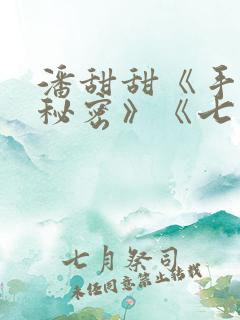 潘甜甜《手
秘密》《七
七月祭司
未经同意禁止转载